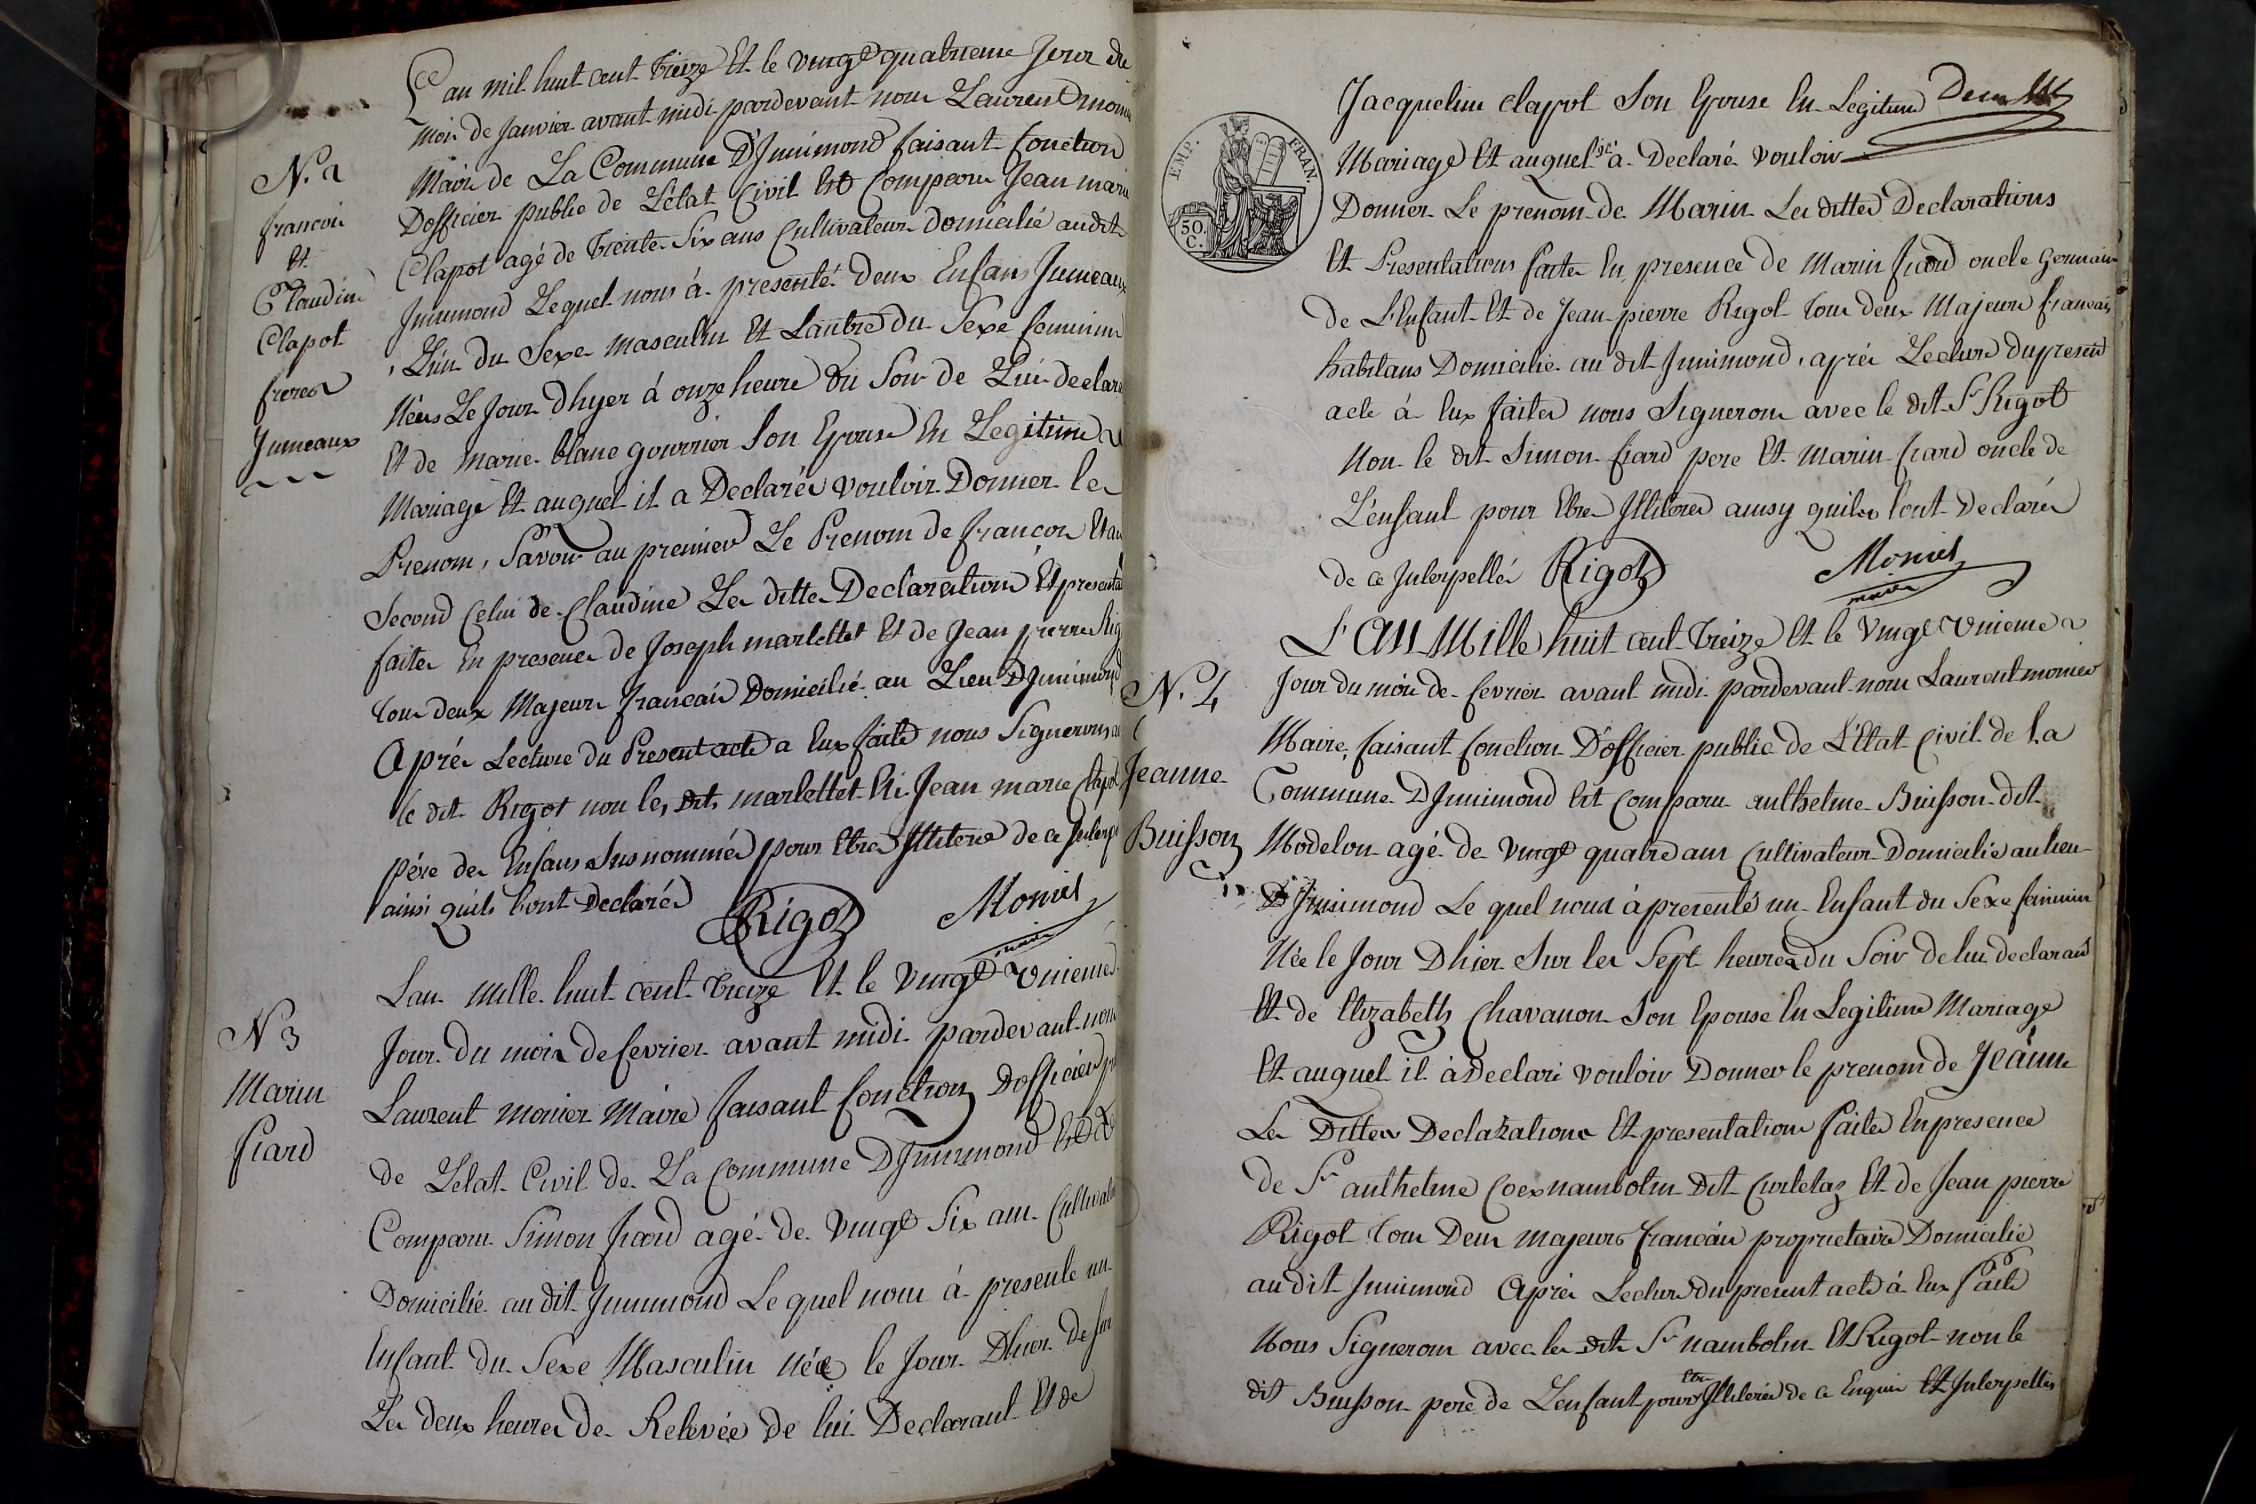 L'an mil huit cent treize Et le vingt quatrieme Jour du
mois de Janvier avant midi pardevant nous Laurent monier
Maire de La Commune D'Jnnimond faisant fonction
Dofficier public de L'état Civil Est Comparu Jean marie
Clapot agé de trente Six ans Cultivateur Domicilié audit
Jnnimond Lequel nous à presenté deux Enfans Jumeaux
L'un du Sexe masculin Et Lautre du Sexe feminin
Nées Le Jour Dhyer à onze heure du Soir de Lui declarant
Et de marie blanc gourrier Son Epouse En Legitime
Mariage Et auquel il a Declarés vouloir Donner les
Prenom, Savoir au premier Le Prenom de françois Et au
Second Celui de Claudine Les dittes Declarations Et presentations
faites En presence de Joseph marlettet Et de Jean pierre Rigot
tous deux Majeurs francais Domicilié au Lieu D'Jnnimond
Après Lecture du Present acte a Eux faite nous Signerons
le dit Rigot non les dits marlettet Et Jean marie Clapot
pére des Enfans Susnommés pour Etre Jlliteré de ce
ainsi quils l'ont Declarés
Rigot Monier
maire
N. 2
francois
Et
Claudine
Clapot
freres
Jumeaux
Lan mille huit cent treize Et le vingt unieme
Jour du mois de fevrier avant midi pardevant nous
Laurent monier Maire faisant fonction Dofficier
de L'etat Civil de La Commune D'Jnnimond Est
Comparu Simon fiard agé de vingt Six ans Cultivateur
Domicilié au dit Jnnimond Lequel nous à presente un
Enfant du Sexe Masculin née le Jour Dhier
Les deux heures de Relevée de lui Declarant Et de
N 3
Marin
fiard
EMP. FRAN.
50. C.
Jacqueline clapot Son Epouse En Legitime
Mariage Et auquel à Declaré vouloir
Donner Le prenom de Marin Les dittes Declarations
Et Presentations faites En presence de Marin fiard oncle Germain
de L'Enfant Et de Jean pierre Rigot tous deux Majeurs francais
habitans Domicilié au dit Jnnimond, aprés Lecture dupresent
acte à Eux faites nous Signerons avec le dit Sr Rigot
Non le dit Simon fiard pere Et marin fiard oncle de
L'enfant pour Etre Jlliterés ainsy quiles lont Declarés
de ce Jnterpellés Rigot Monier
maire
L'an Mille huit cent treize Et le vingt unieme
Jour du mois de fevrier avant midi pardevant nous Laurent monier
Maire, faisant fonction D'officier public de L'Etat Civil de La
Commune D'Jnnimond Est Comparu anthelme Buisson dit
Modelon agé de vingt quatre ans Cultivateur Domicilié au lieu
D'Jnnimond Le quel nous à presentés un Enfant du Sexe feminin
Née le Jour Dhier Sur les Sept heures du Soir de lui declarant
Et de Elizabeth Chavanon Son Epouse En Legitime Mariage
Et auquel il à Declaré vouloir Donner le prenom de Jeanne
Les Dittes Declarations Et presentations faites En presence
de Sr anthelme Coex nambotin Dit Curtelaz Et de Jean pierre
Rigot tous Deux majeurs francais proprietaire Domicilié
au dit Jnnimond Aprés Lecture du present acte à Eux faite
Nous Signerons avec les dits Sr nambotin Et Rigot non le
dit Buisson pere de L'enfant pour Etre Jlliterés de ce Enquis Et Jnterpellés
N. 4
Jeanne
Buisson